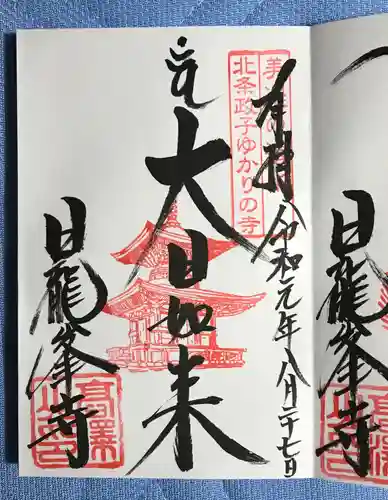 奉拝
令和元年八月二十七日
北条政子ゆかりの寺
大日如来
日龍峯寺
日龍峯寺